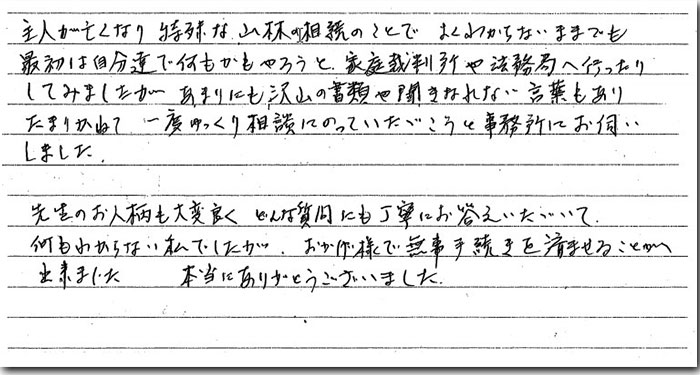 主人が亡くなり 特殊な山林の相続のことで よくわからないままでも
最初は自分達で何もかもやろうと、家庭裁判所や法務局へ行ったり
してみましたが あまりにも沢山の書類や聞きなれない言葉もあり
たまりかねて 一度ゆっくり相談にのっていただこうと事務所にお伺い
しました。
先生のお人柄も大変良く どんな質問にも丁寧にお答えいただいて、
何もわからない私でしたが、おかげ様で無事手続きを済ませることが
出来ました 本当にありがとうございました。